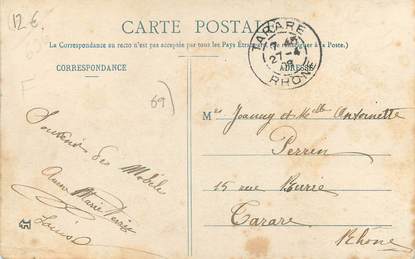 12 €
CARTE POSTALE
(La Correspondance au recto n'est pas acceptée par tous les Pays Étrangers. (Se renseigner à la Poste.)
CORRESPONDANCE
ADRESSE
TARARE
27-4
08
RHONE
69)
Souvenir des Mobile
Anne Marie Perrin
Louise
Mrs Joanny et Melle Antoinette
Perren
15 rue Burie
Tarare
Rhone